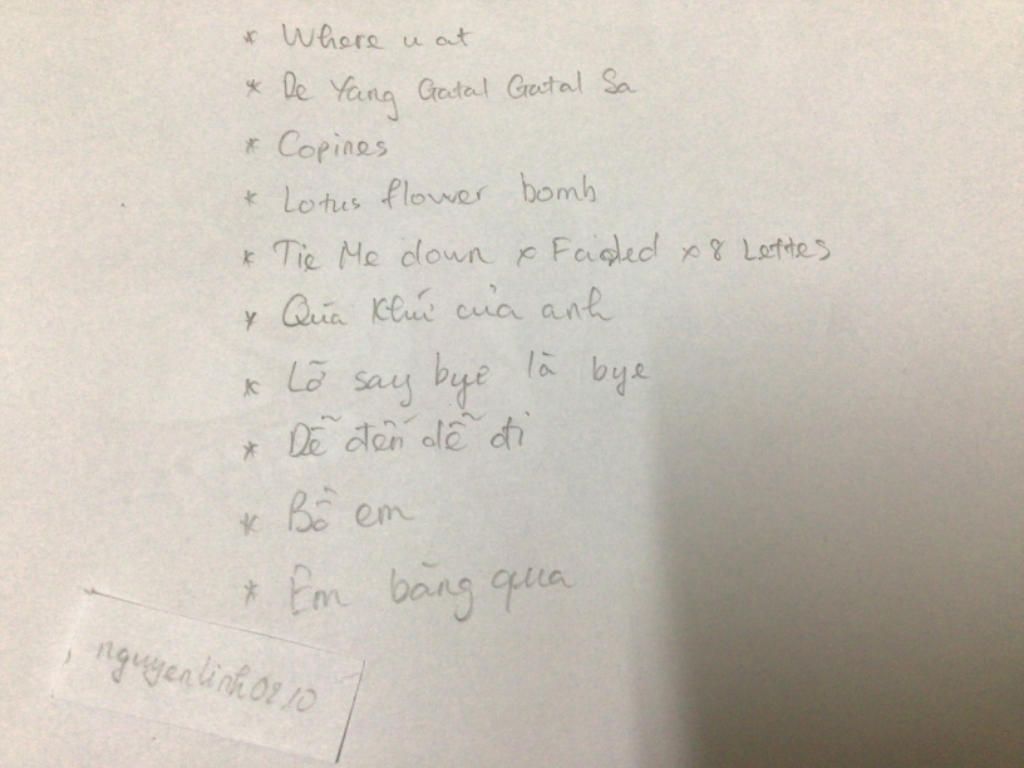 * Where u at
* De Yang Gatal Gatal Sa
* Copines
* Lotus flower bomb
* Tie Me down x Faded x 8 Lettes
* Qúa Khứ của anh
* Lỡ say bye là bye
* Dễ đến dễ đi
* Bồ em
* Êm bằng qua
nguyenlinh0210